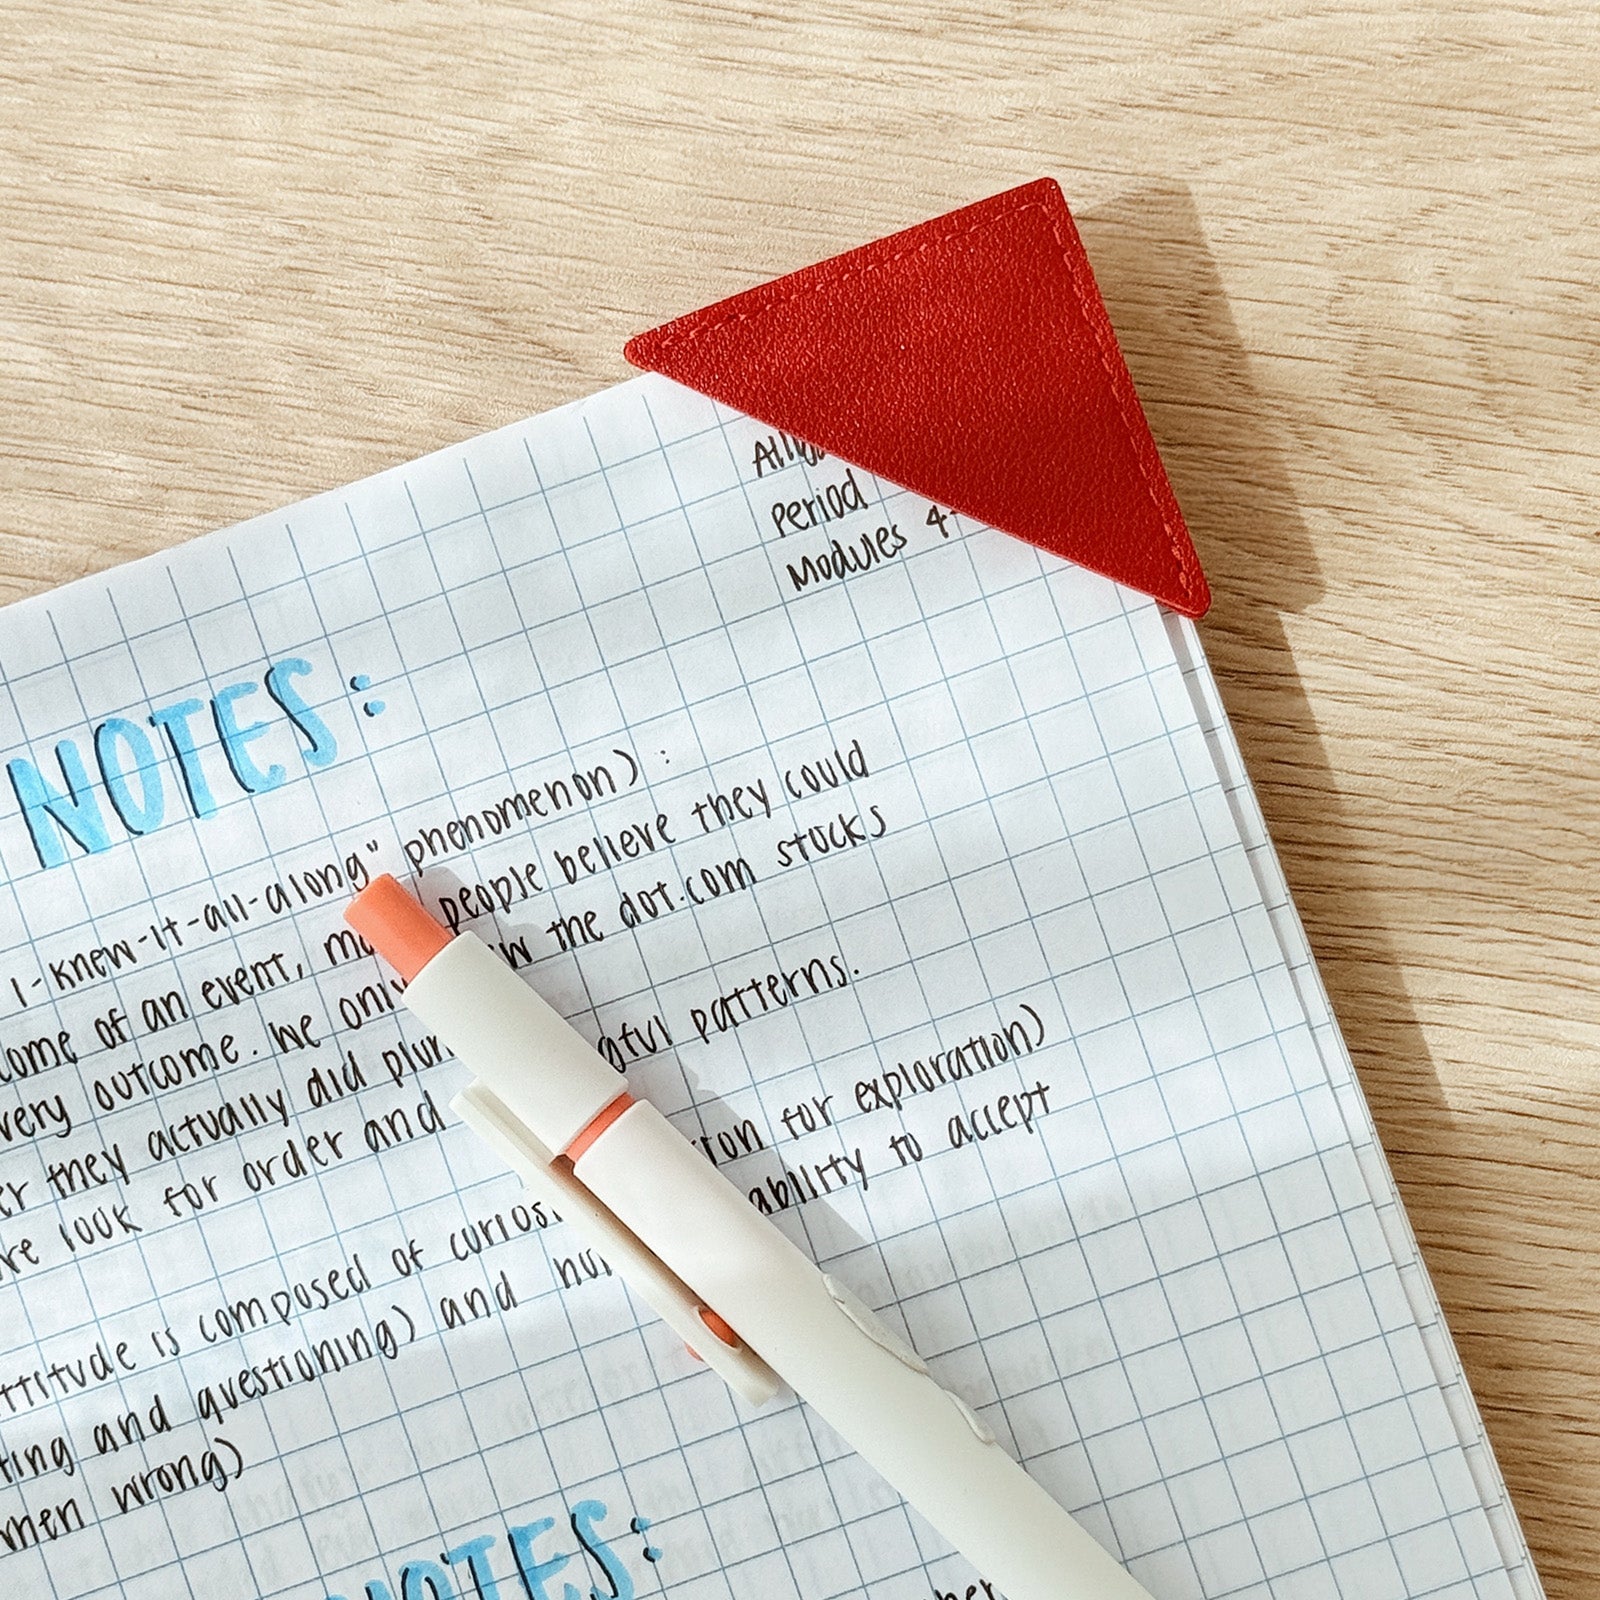 period
Modules 4-
NOTES:
I-knew-it-all-along" phenomenon):
come of an event, people believe they could
very outcome. We only the dot.com stocks
er they actually did
re look for order and patterns.
ttitude is composed of for exploration)
ting and questioning) and ability to accept
when wrong)
NOTES: